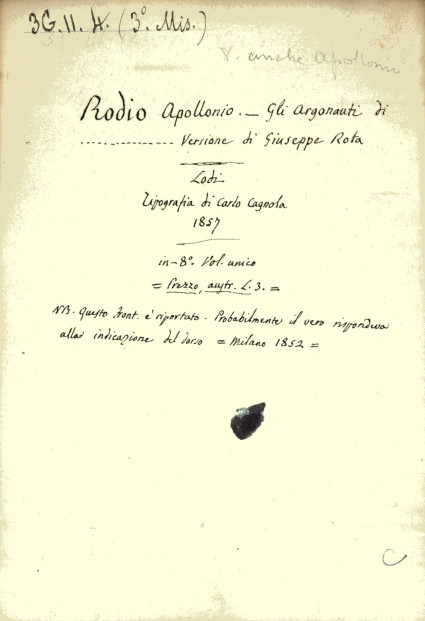 3G.II.4. (3° Mis.)
V. anche Apollonio
Rodio Apollonio. — Gli Argonauti di
................... Versione di Giuseppe Rota
Lodi
Tipografia di Carlo Cagnola
1857
in-8°. Vol. unico
= Prezzo, austr. L. 3. =
NB. Questo front. è riportato. Probabilmente il vero rispondeva
alla indicazione del dorso = Milano 1852 =
C